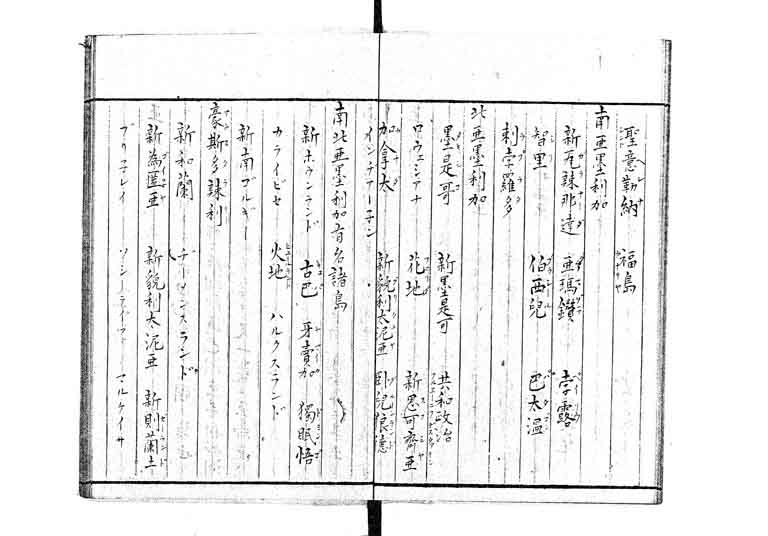 聖意勒納　福島
南亜墨利加
新瓦辣那達　亜瑪鑽　孛露
智里　伯西兒　巴太温
剌孛羅多
北亜墨利加
墨是哥　新墨是可　共和政治
ロウェシアナ　花地　新思可齋亜
加拿太　新貌利太泥亜　臥兒狼德
インヂアーネン
南北亜墨利加有名諸島
新ホウンランド　古巴　牙賣加　獨眠悟
カライビセ　火地　ハルクスランド
新南ゴルギー
豪斯多辣利
新和蘭　ヂーメンスランド
新為匿亜　新貌利太泥亜　新則蘭土
ブリテレイ　ソシーテイツ　マルケイサ